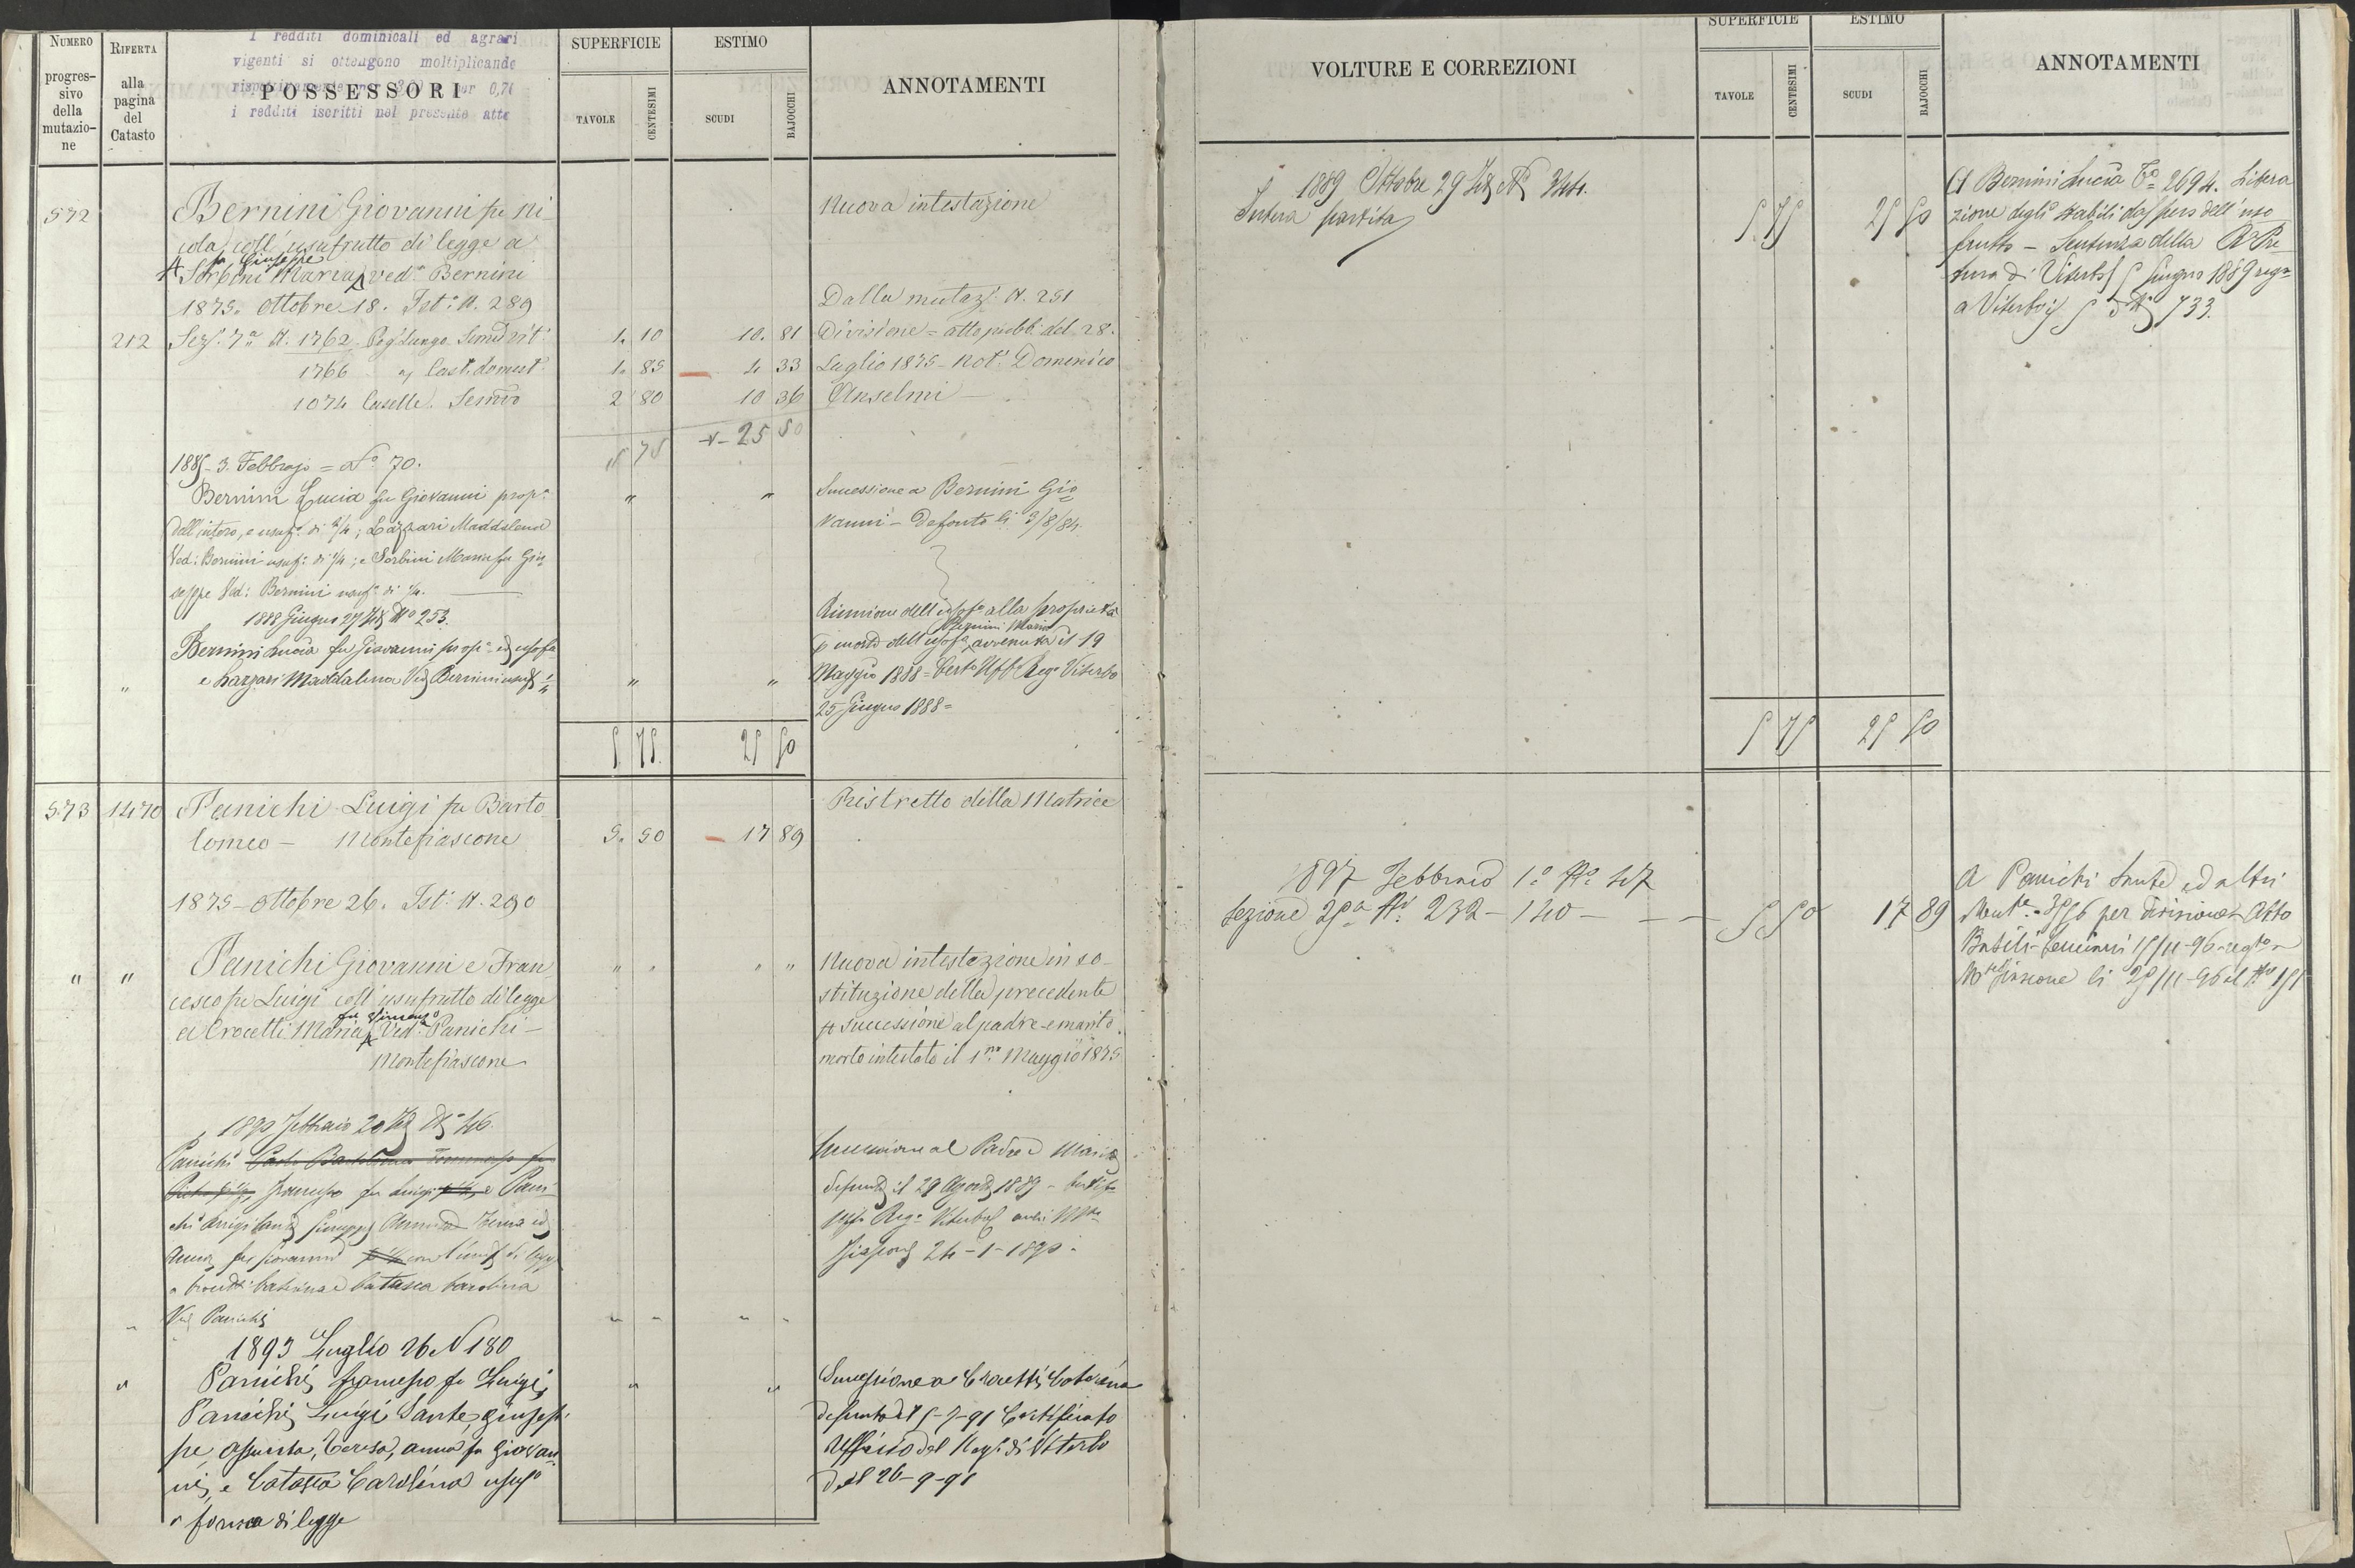 NUMERO progressivo della mutazione
RIFERTA alla pagina del Catasto
I redditi dominicali ed agrari
vigenti si ottengono moltiplicando
per 0,7
i redditi iscritti nel presente atto
POSSESSORI
SUPERFICIE
TAVOLE CENTESIMI
ESTIMO
SCUDI BAJOCCHI
ANNOTAMENTI
572 Bernini Giovanni fu Ni
cola, coll' usufrutto di legge a
fu Giuseppe
Sorbini Maria ved.a Bernini
1875. Ottobre 18. Ist: N. 289
212 Sez. 7a N. 1762 Pog. Lungo Semo vit: 1. 10 10. 81
1766 " Cast. domest: 1. 85 4 33
1074 Caselle. Semvo 2 80 10 36
5 75 25 50
Nuova intestazione
Dalla mutaz: N. 251
Divisione = atto pubb. del 28.
Luglio 1875 - Not: Domenico
Anselmi -
1885 - 3. Febbrajo = No 70.
Bernini Lucia fu Giovanni prop:a " "
dell'intero, e usuf: di 2/4; Lazzari Maddalena
Ved: Bernini usuf: di 1/4; e Sorbini Maria fu Giu
seppe Ved: Bernini usuf: di 1/4.
Successione a Bernini Gio
vanni - Defonto li 3/8/84.
1888 Giugno 27 No 253.
Bernini Lucia fu Giovanni prop.a ed usufa
" e Lazzari Maddalena Ved Bernini usuf 1/4 " "
Riunione dell' usofo alla proprietà
Bernini Maria
p morte dell' usofa avvenuta il 19
Maggio 1888 = Certo Uffo Rego Viterbo
25 Giugno 1888 =
5 75 25 50
573 1470 Panichi Luigi fu Barto
lomeo - Montefiascone 5. 50 17 89
Ristretto della Matrice
1875 - Ottobre 26. Ist: N. 290
" " Panichi Giovanni e Fran " " " "
cesco fu Luigi coll' usufrutto di legge
fu Vincenzo
a Crocetti Maria Ved.a Panichi -
Montefiascone
Nuova intestazione in so-
stituzione della precedente
p successione al padre e marito
morto intestato il 1mo Maggio 1875
1890 Febbraio 20 No 46.
Panichi
Francesco fu Luigi e Pani
chi Luigi Sante Giuseppe
Anna fu Giovanni con l'usuf di legge
a Crocetti Caterina e Catasca Carolina
" Ved Panichi " " " "
Successione al Padre e Marito
defunto il 29 Agosto 1889 - Certifo
Uffo Rego Viterbo
24 - 1 - 1890.
1893 Luglio 26 N 180
" Panichi Francesco fu Luigi, " "
Panichi Luigi Sante, Giusep
pe, Assunta, Teresa, Anna fu Giovan
ni, e Catasca Carolina usufo
a forma di legge
Successione a Crocetti Caterina
defunta il 5-7-91 Certificato
Ufficio del Rego di Viterbo
del 26-9-91
VOLTURE E CORREZIONI
SUPERFICIE
TAVOLE CENTESIMI
ESTIMO
SCUDI BAJOCCHI
ANNOTAMENTI
1889 Ottobre 29 No 344.
Intera partita 5 75 25 50
A Bernini Lucia Co 2694. Libera
zione degli stabili dal peso dell' uso
frutto - Sentenza della R Pre
tura di Viterbo 5 Giugno 1889 rega
a Viterbo il 5 do No 733.
5 75 25 50
1897 Febbraio 1o No 47
Sezione 2a No 232 - 140 - 5 50 17 89
A Panichi Sante ed altri
3556 per divisione Atto
15/11-96 - regto a
Mtefiascone li 25/11-96 al No 151